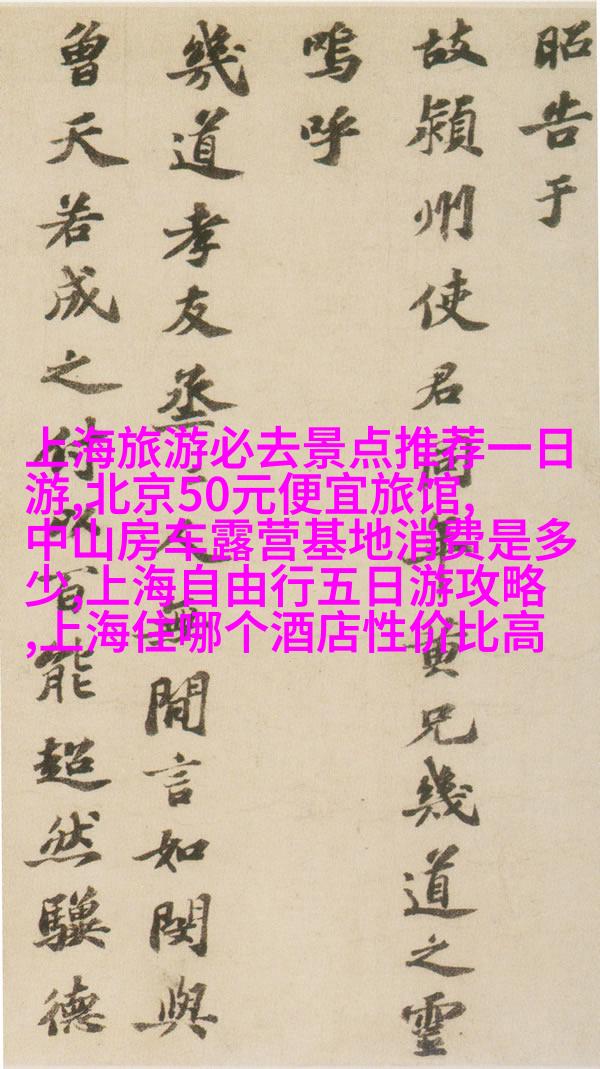 昭告于
故潁州使君同年黄兄幾道之靈
嗚呼
幾道孝友烝烝人無間言如閔與
曾天若成之付以百能超然驥德
上海旅游必去景点推荐一日
游,北京50元便宜旅馆,
中山房车露营基地消费是多
少,上海自由行五日游攻略
,上海住哪个酒店性价比高